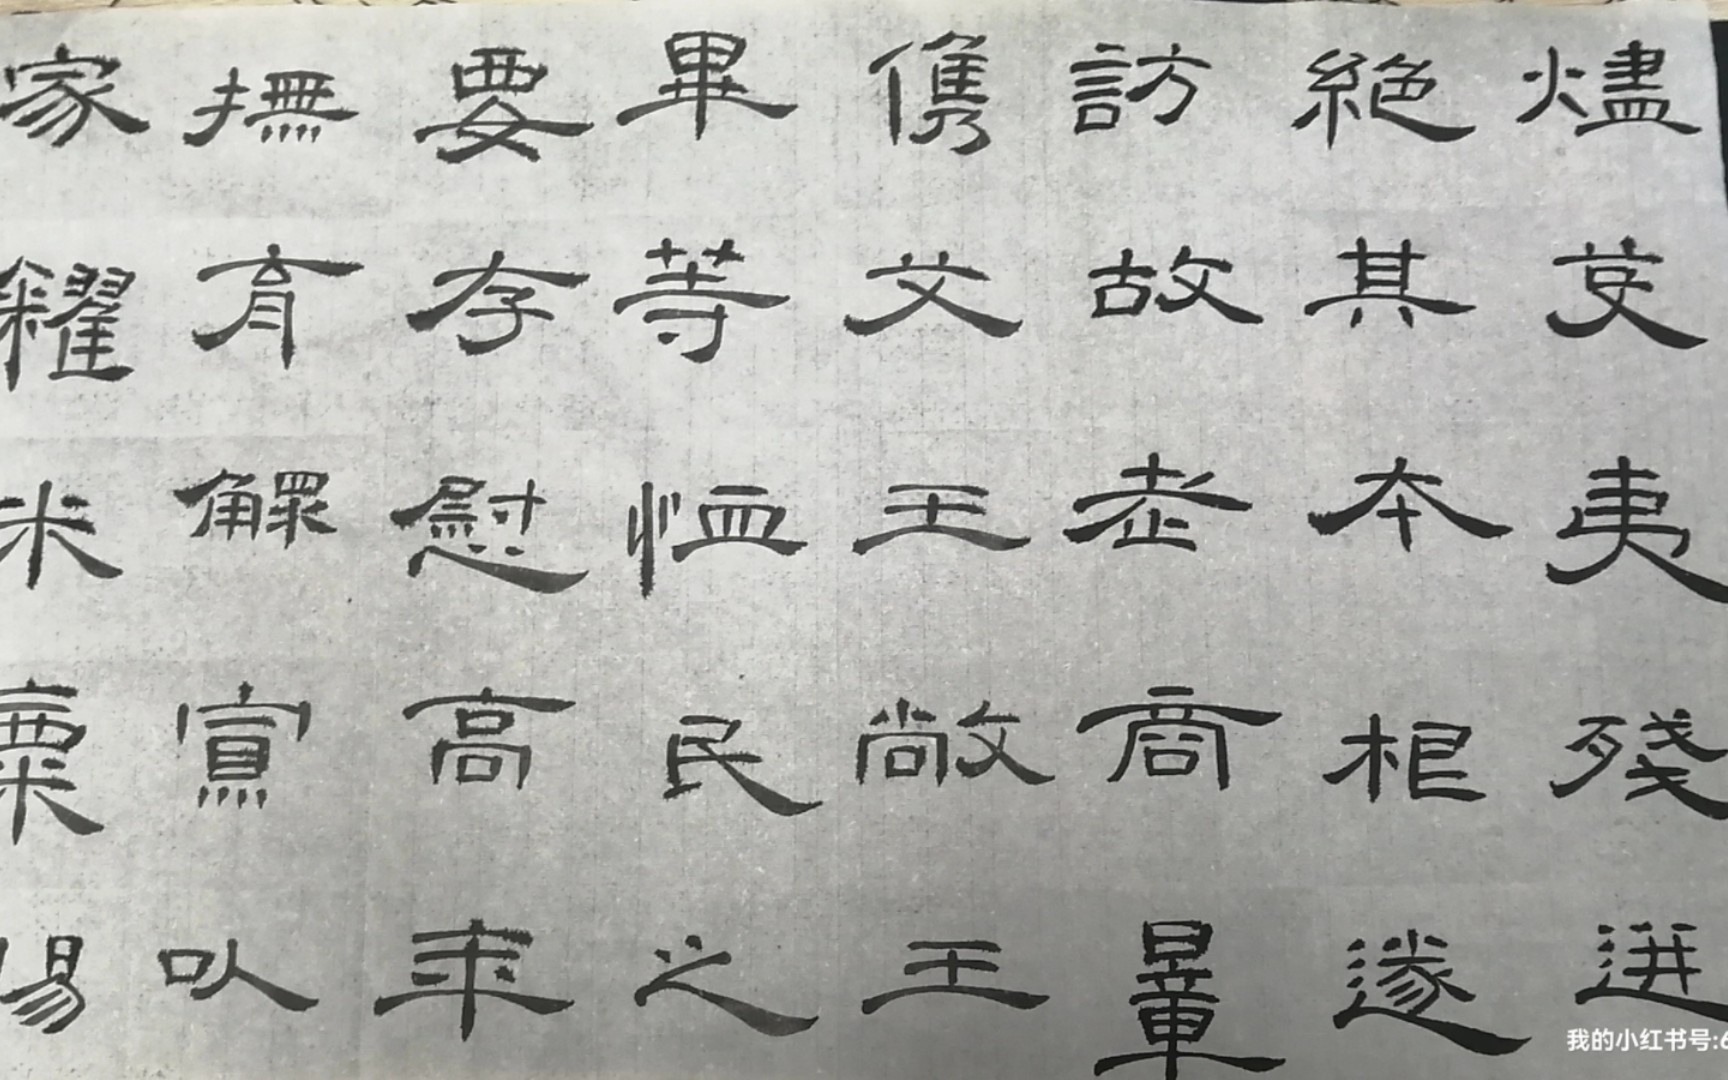 燼芟夷殘迸
絕其本根遂
訪故老商量
儁艾王敞王
畢等恤民之
要存慰高年
撫育鰥寡以
家糴米粟賜
我的小红书号:6